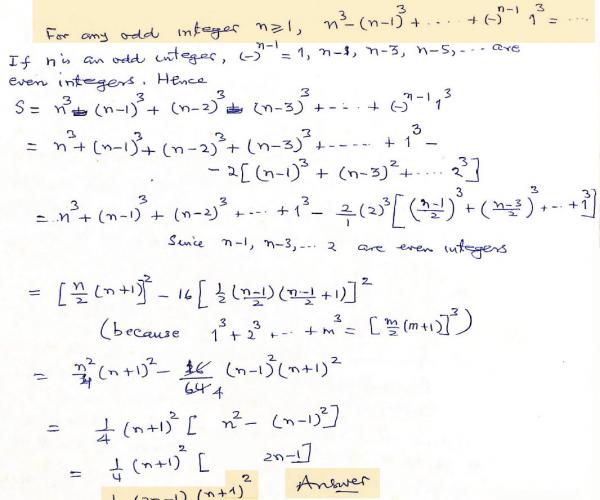 For any odd integer n≥1, n³-(n-1)³+.....+(-)ⁿ⁻¹ 1³ = .....
If n is an odd integer, (-)ⁿ⁻¹ = 1, n-1, n-3, n-5, ... are
even integers. Hence
S = n³ - (n-1)³ + (n-2)³ - (n-3)³ + .... + (-)ⁿ⁻¹ 1³
= n³ + (n-1)³ + (n-2)³ + (n-3)³ + ..... + 1³ -
- 2[(n-1)³ + (n-3)² + .... 2³]
= n³ + (n-1)³ + (n-2)³ + ... + 1³ - 2/1 (2)³ [((n-1)/2)³ + ((n-3)/2)³ + .. + 1³]
Since n-1, n-3, ... 2 are even integers
= [n/2 (n+1)]² - 16[1/2 ((n-1)/2)((n-1)/2 + 1)]²
(because 1³ + 2³ + ... + m³ = [m/2 (m+1)]³)
= n²/4 (n+1)² - 16/64 4 (n-1)² (n+1)²
= 1/4 (n+1)² [ n² - (n-1)²]
= 1/4 (n+1)² [ 2n-1]
(2n-1) (n+1)² Answer